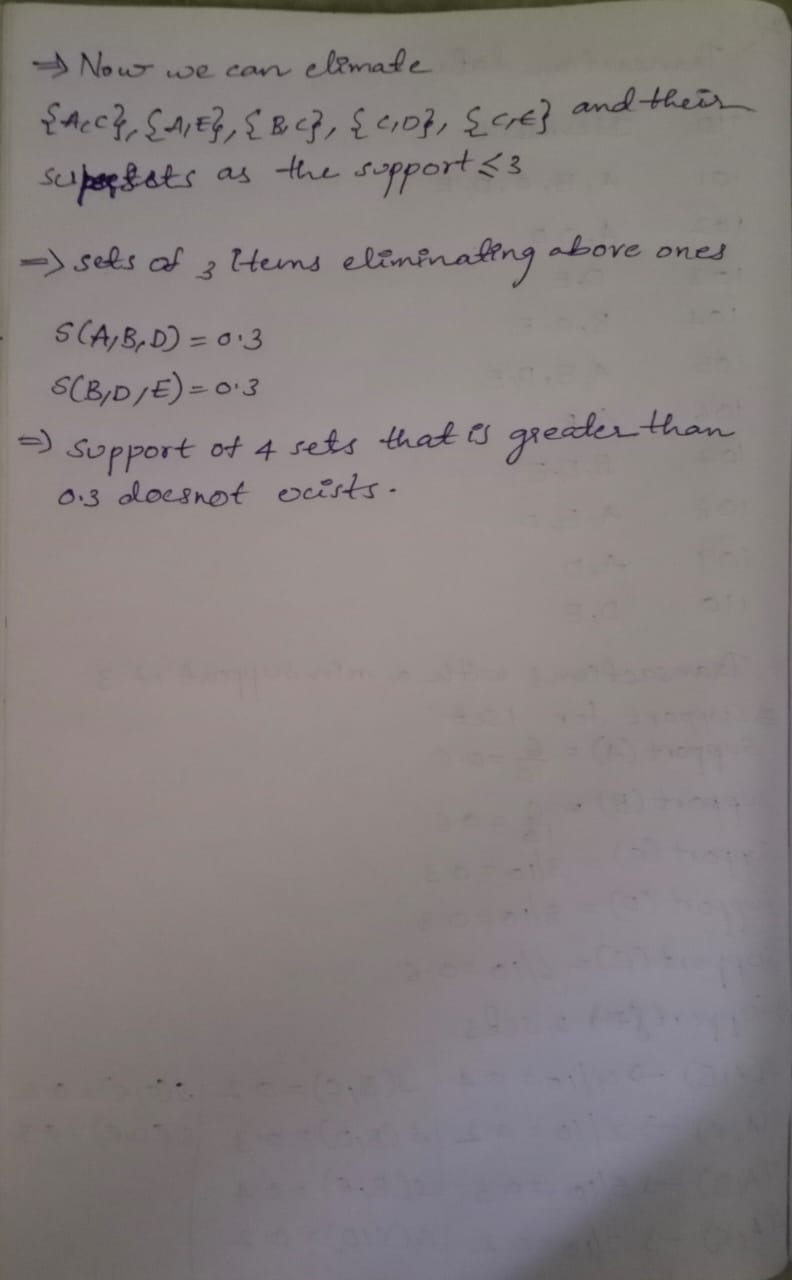 ⇒ Now we can elimate
{A,C}, {A,E}, {B,C}, {C,D}, {C,E} and their
supersets as the support ≤ 3
⇒ sets of 3 items eliminating above ones
S(A,B,D) = 0.3
S(B,D,E) = 0.3
⇒ support of 4 sets that is greater than
0.3 doesnot exists.